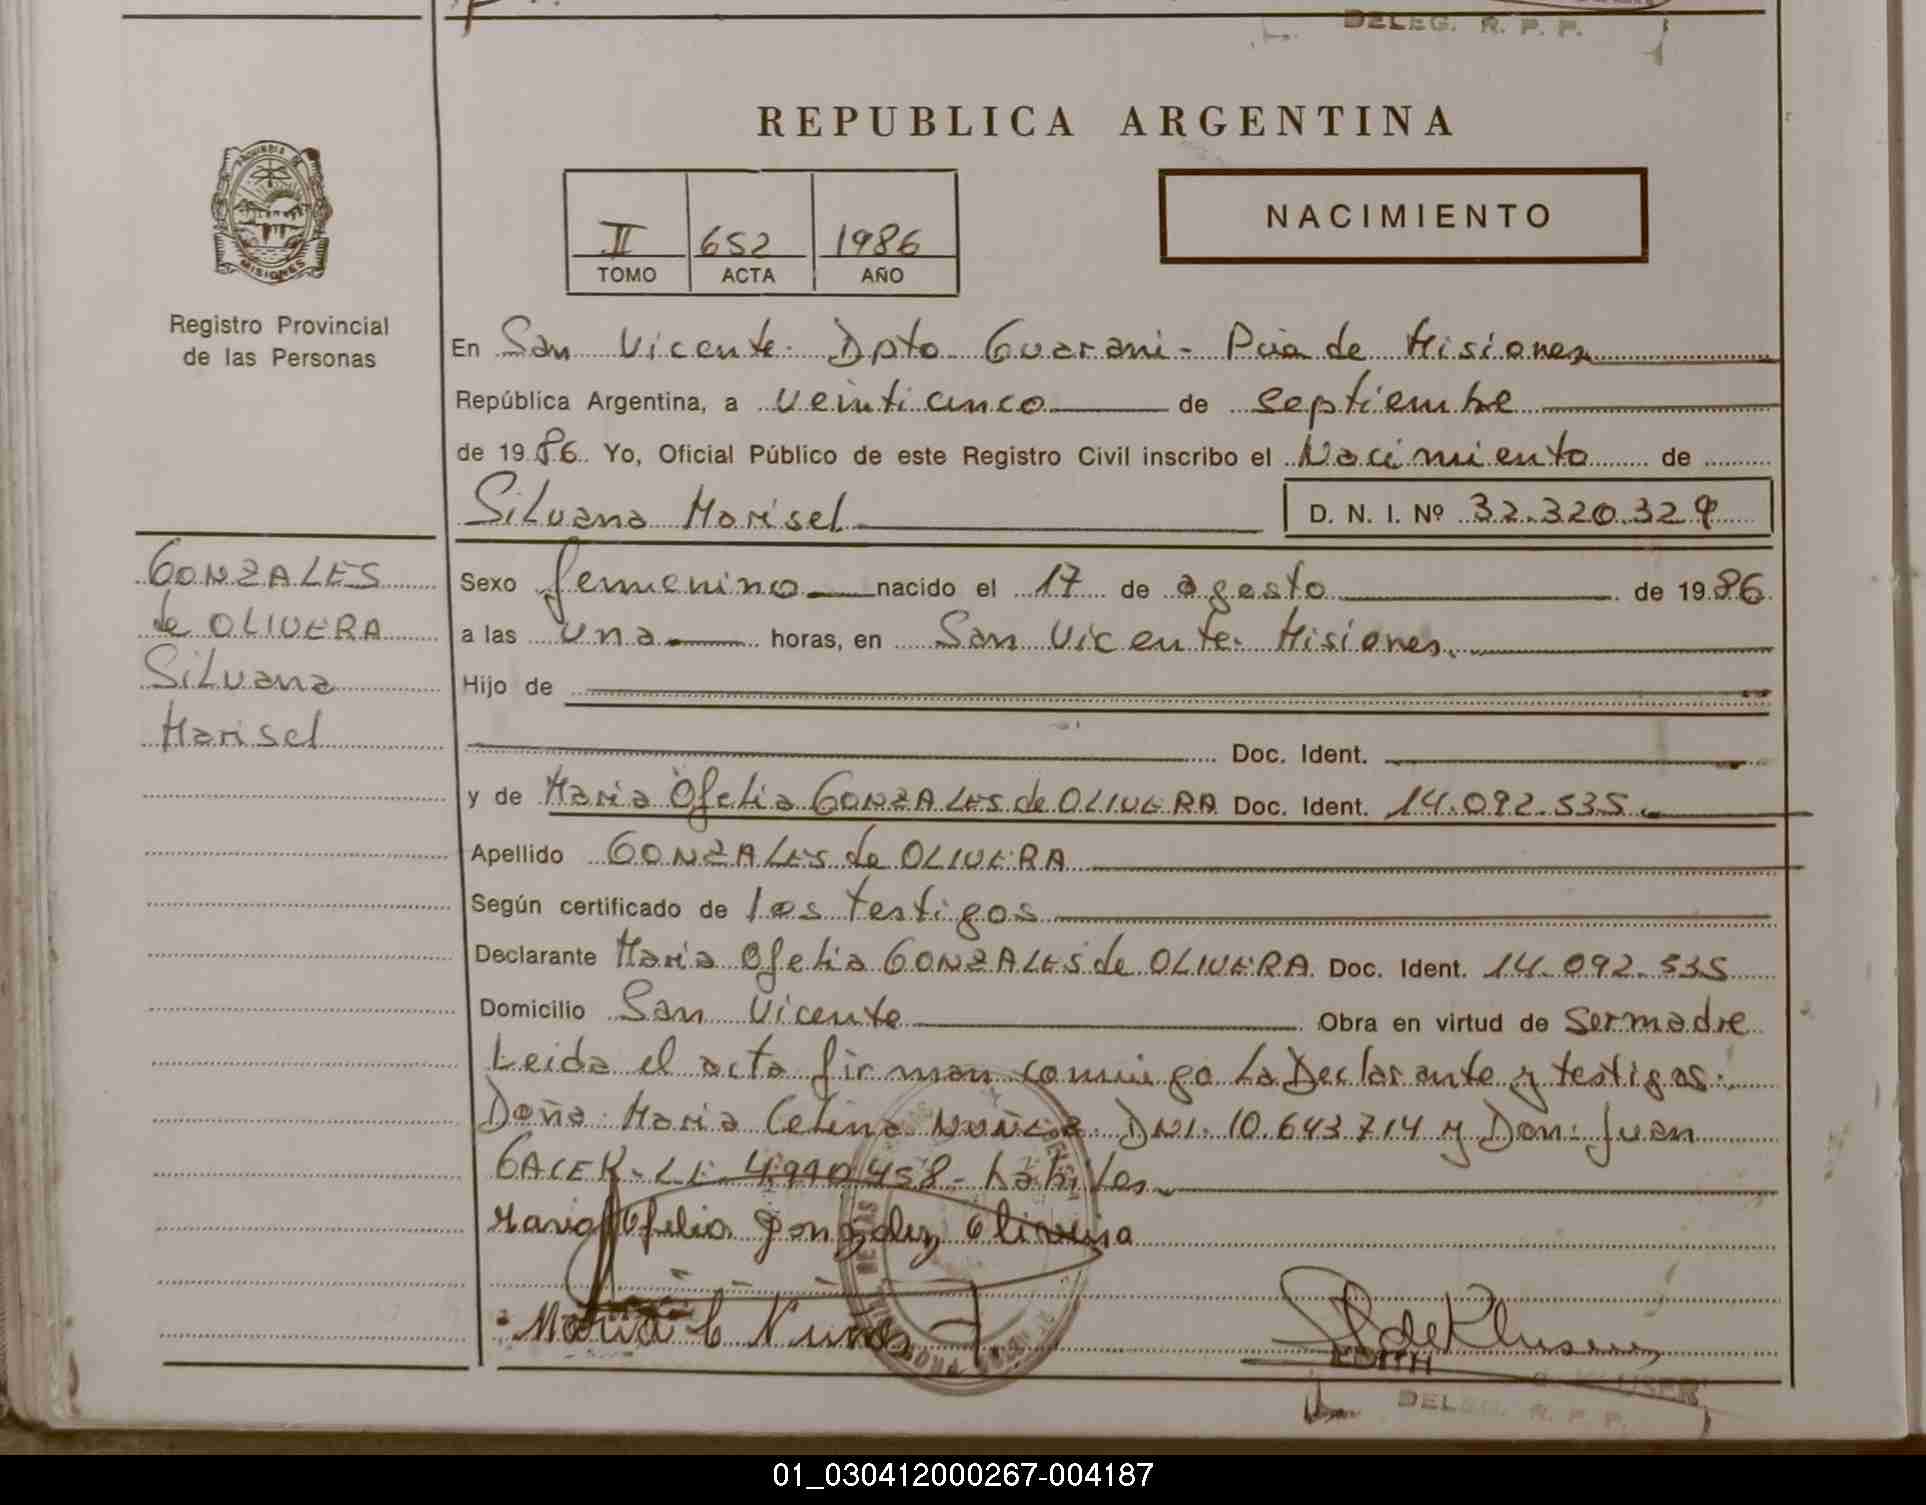 DELEG. R. P. P.
REPUBLICA ARGENTINA
PROVINCIA DE
MISIONES
Registro Provincial
de las Personas
NACIMIENTO
II 652 1986
TOMO ACTA AÑO
En San Vicente - Dpto Guarani - Pcia de Misiones
República Argentina, a veinticinco de septiembre
de 1986 Yo, Oficial Público de este Registro Civil inscribo el Nacimiento de
Silvana Marisel D. N. I. Nº 32.320.329
GONZALES
de OLIVERA
Silvana
Marisel
Sexo femenino nacido el 17 de agosto de 1986
a las una horas, en San Vicente - Misiones.
Hijo de
Doc. Ident.
y de Maria Ofelia GONZALES de OLIVERA Doc. Ident. 14.092.535
Apellido GONZALES de OLIVERA
Según certificado de los testigos
Declarante Maria Ofelia GONZALES de OLIVERA Doc. Ident. 14.092.535
Domicilio San Vicente Obra en virtud de ser madre
Leida el acta firman conmigo La Declarante y testigos:
Doña: Maria Celina NUÑEZ - DNI. 10.643.714 y Don: Juan
GACEK - LE 4.990.458 - habiles
Maria Ofelia Gonzalez Oliveira
Maria C Nunes
EDITH KLUSER
DELEG. R. P. P.
01_030412000267-004187